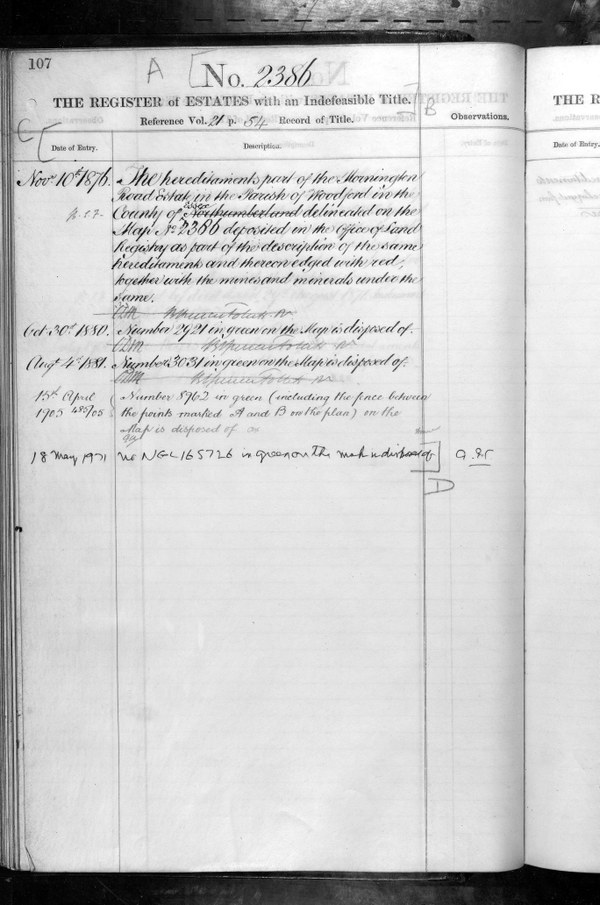 107
A
No. 2386
THE REGISTER of ESTATES with an Indefeasible Title.
B
Reference Vol. 21 p. 54 Record of Title.
Observations.
C
Date of Entry.
Description.
THE R
Date of Entry.
Novr. 10th 1876.
The hereditaments part of the Mornington
Road Estate in the Parish of Woodford in the
Essex
County of Northumberland delineated on the
Map No. 2386 deposited in the Office of Land
Registry as part of the description of the same
hereditaments and thereon edged with red,
together with the mines and minerals under the
same.
Oct. 30th 1880.
Number 2921 in green on the Map is disposed of.
Augt. 4th 1881.
Number 3031 in green on the Map is disposed of.
15th April
1905
Number 8962 in green (including the piece between
the points marked A and B on the plan) on the
Map is disposed of
18 May 1971
No NGL 165726 in green on the map is disposed of
D